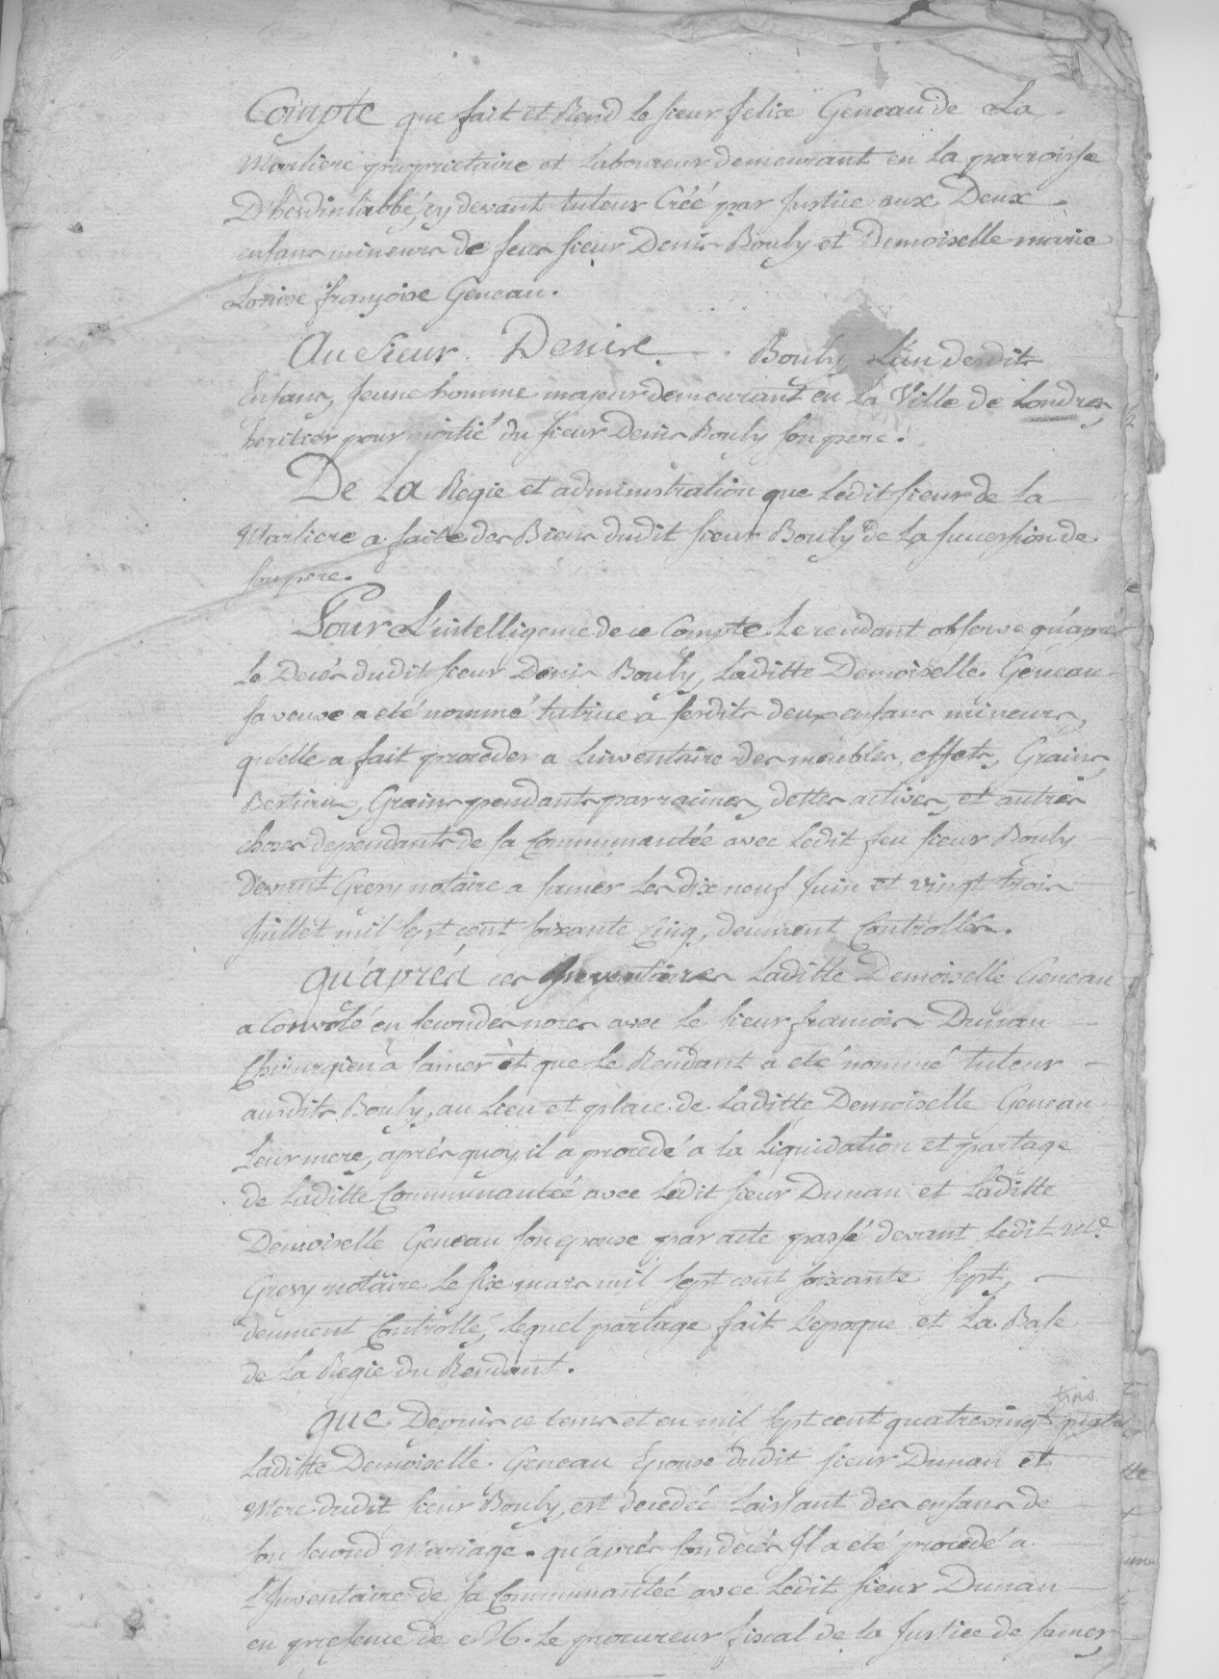 Compte que fait et Rend le sieur felix Geneau de La
Marliere proprietaire et laboureur demeurant en la parroisse
D'hesdinlabbé, cy devant tuteur Créé par Justice aux Deux
enfans mineurs de feu sieur Denis Bouly et Demoiselle marie
Louise françoise Geneau.
Au Sieur Denis Bouly L'un desdits
Enfans, Jeune homme majeur demeurant en La Ville de Londres,
heritier pour moitié du sieur Denis Bouly son pere.
De La Regie et administration que Ledit sieur de la
Marliere a faite des Biens dudit sieur Bouly de la succession de
son pere.
Pour L'intelligence de ce Compte Le rendant observe qu'aprés
le Decés dudit sieur Denis Bouly, Laditte Demoiselle Geneau
sa veuve a eté nommé tutrice à sesdits deux enfans mineurs,
qu'elle a fait proceder a L'inventaire des meubles, effets, Grains,
Bestiaux, Grains pendants par racines, dettes actives, et autres
choses dependants de sa Communautée avec Ledit feu sieur Bouly
devant Gresy notaire a samer les dix neuf Juin et vingt trois
Juillet mil sept cent soixante Cinq, deument Controllés.
qu'aprés ces Inventaires Laditte Demoiselle Geneau
a Convolé en secondes noces avec Le sieur francois Dunau
Chirurgien à samer et que Le Rendant a eté nommé tuteur
auxdits Bouly, au Lieu et place de Laditte Demoiselle Geneau
Leur mere, aprés quoy il a procedé a la Liquidation et partage
de Laditte Communautée avec Ledit sieur Dunau et Laditte
Demoiselle Geneau son epouse par acte passé devant Ledit Me
Gresy notaire Le six mars mil sept cent soixante sept,
deument Controllé, lequel partage fait L'epoque et La Base
de La Regie du Rendant.
que Depuis ce tems et en mil sept cent quatrevingt
Laditte Demoiselle Geneau Epouse dudit sieur Dunau et
Mere dudit sieur Bouly, est decedée Laissant des enfans de
son second Mariage. qu'aprés son decés Il a eté procedé a
L'Inventaire de sa Communautée avec Ledit sieur Dunau
en presence de M. Le procureur fiscal de la Justice de samer,